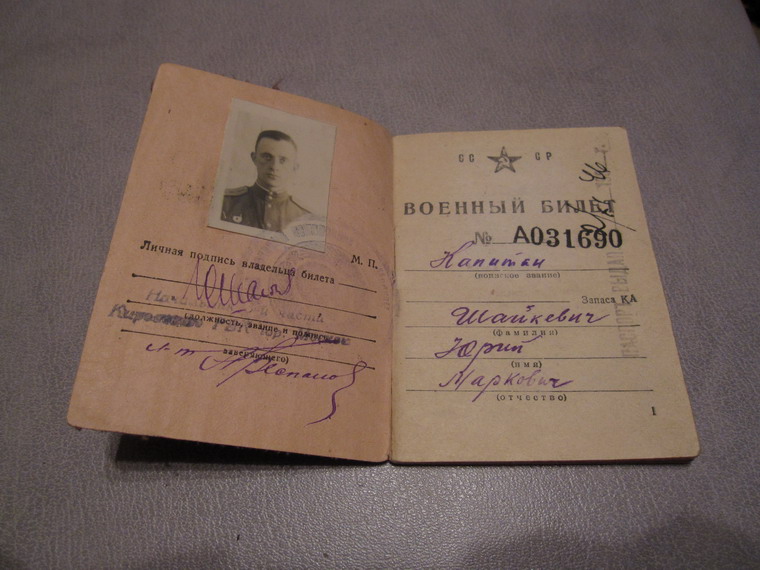 Личная подпись владельца билета
М. П.
части
(должность, звание и подпись
заверяющего)
СС СР
ВОЕННЫЙ БИЛЕТ
№ А031690
Капитан
(воинское звание)
Запаса КА
Шайкевич
(фамилия)
Юрий
(имя)
Маркович
(отчество)
1